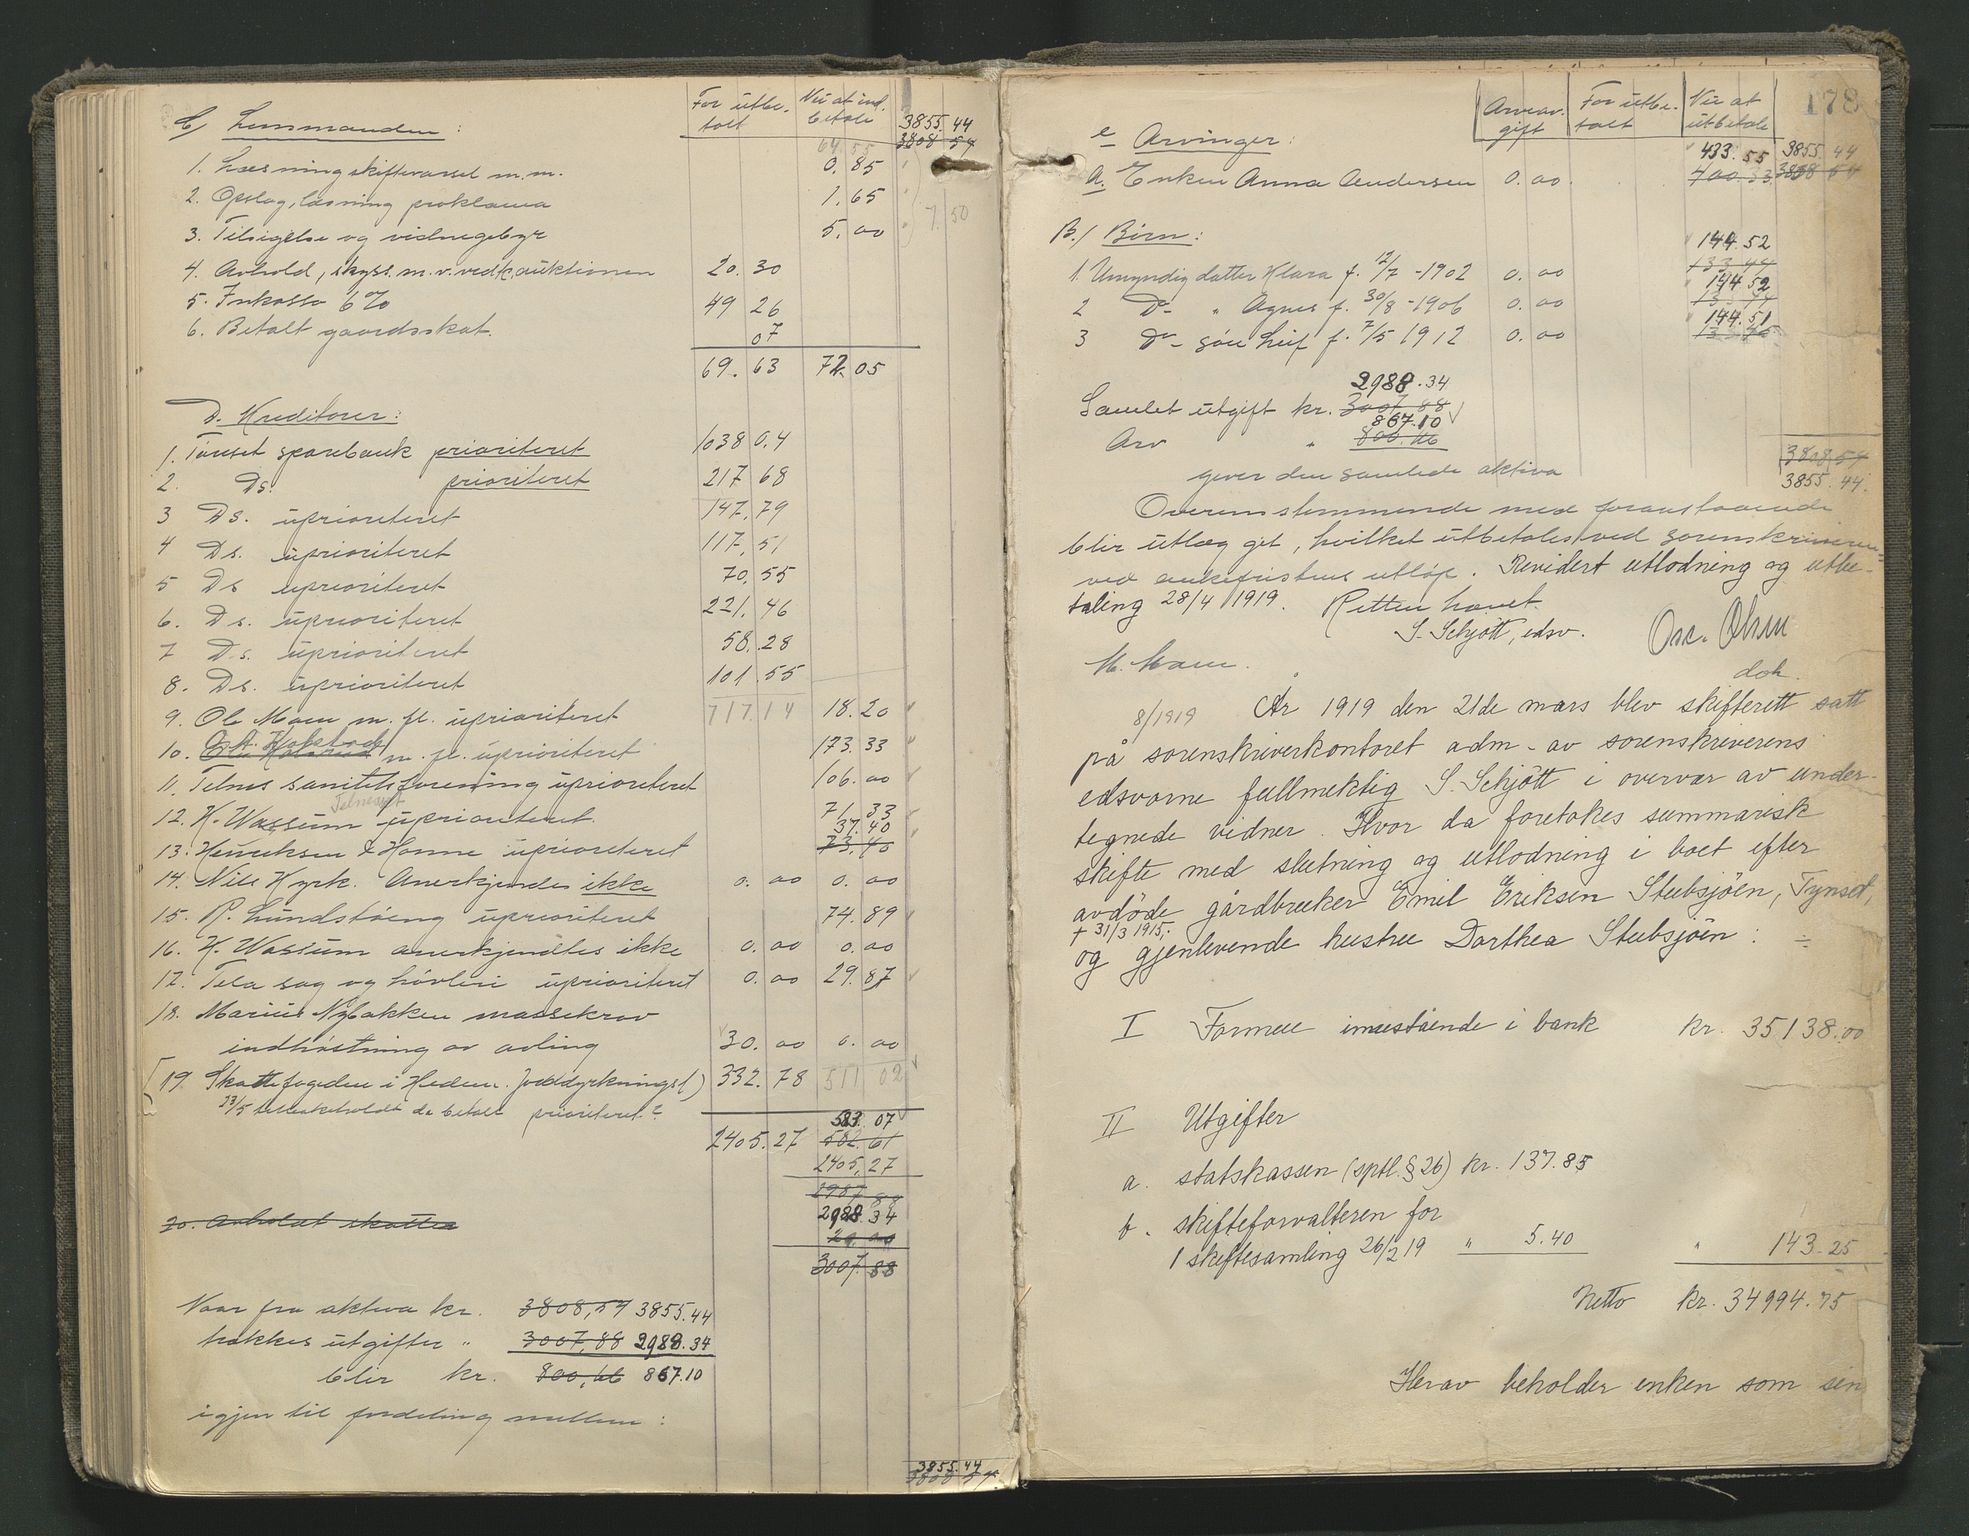 C/ Lensmanden:
For utbe- talt
Nu at ind. betale
3855.44
3808 54
64.55
1. Læsning skiftevarsel m.m. 0.85
2. Opslag, læsning proklama 1.65
3. Tilsigelse og vidnegebyr 5.00 7.50
4. Avhold, skyss m.v. ved auktionen 20.30
5. Inkasso 6% 49 26
6. Betalt gaardsskat. 07
69.63 72.05
D. Kreditorer:
1. Tønset sparebank prioriteret 1038 0.4
2. Ds. prioriteret 217 68
3 Ds. uprioriteret 147.79
4 Ds. uprioriteret 117.51
5 Ds uprioriteret 70.55
6. Ds. uprioriteret 221.46
7 Ds. uprioriteret 58.28
8. Ds. uprioriteret 101.55
9. Ole Moen m. fl. uprioriteret 717.14 18.20
10. m. fl. uprioriteret 173.33
11. Telnes sanitetsforening uprioriteret 106.00
Telneset
12. K. Wassum uprioriteret. 71.33
37.40
13. Henriksen & Honne uprioriteret 73.40
14. Nils Kyrk. Anerkjendes ikke 0.00 0.00
15. R. Lundstöeng uprioriteret 74.89
16. K. Wassum anerkjendtes ikke 0.00 0.00
17. Tela sag og høvleri uprioriteret 0.00 29.87
18. Marius Nybakken massekrav
indhøstning av avling 30.00 0.00
[19. Skattefogden i Hedem. (jorddyrkningsl) 332.78 511 02
23/5 tilbakeholdt da betalt prioriteret?
583.07
2405.27 582.61
2405,27
2987.88
20. Avholdt skatter
2988.34
20.00
3007.88
Naar fra aktiva kr. 3808,54 3855.44
trækkes utgifter " 3007,88 2988.34
blir kr. 800,66 867.10
igjen til fordeling mellem:
3855.44
3808 54
178
Arveav- gift
For utbe- talt
Nu at utbetale
e Arvinger:
433.55 3855.44
a. Enken Anna Andersen 0.00 400.33 3808 54
B./ Børn:
144.52
1. Umyndig datter Klara f. 7/2 -1902 0.00 133.44
144.52
2 Do " Agnes f. 30/8 -1906 0.00
144.51
3 Do- søn Leif f. 7/5 1912 0.00
2988.34
Samlet utgift kr. 3007 88
867.10
Arv " 800.66
3808.54
giver den samlede aktiva 3855.44.
Overensstemmende med foranstaaende
blir utlæg get, hvilket utbetales ved sorenskriveren
ved ankefristens utløp. Revidert utlodning og utbe-
taling 28/4 1919. Retten hævet.
S. Schjött, edsv. Osc. Olsen
M. Moen. doh.
8/1919 År 1919 den 21de mars blev skifterett satt
på sorenskriverkontoret adm. av sorenskriverens
edsvorne fullmektig S. Schjött i overvær av under-
tegnede vidner. Hvor da foretokes summarisk
skifte med slutning og utlodning i boet efter
avdöde gårdbruker Emil Eriksen Stubsjöen, Tynset,
+ 31/3 1915,
og gjenlevende hustru Dorthea Stubsjöen: ÷
I Formue innestående i bank kr. 35138.00
II Utgifter
a. statskassen (sptl. § 26) kr. 137.85
b. skifteforvalteren for
1 skiftesamling 26/2 19 " 5.40 " 143.25
Netto kr. 34994.75
Herav beholder enken som sin